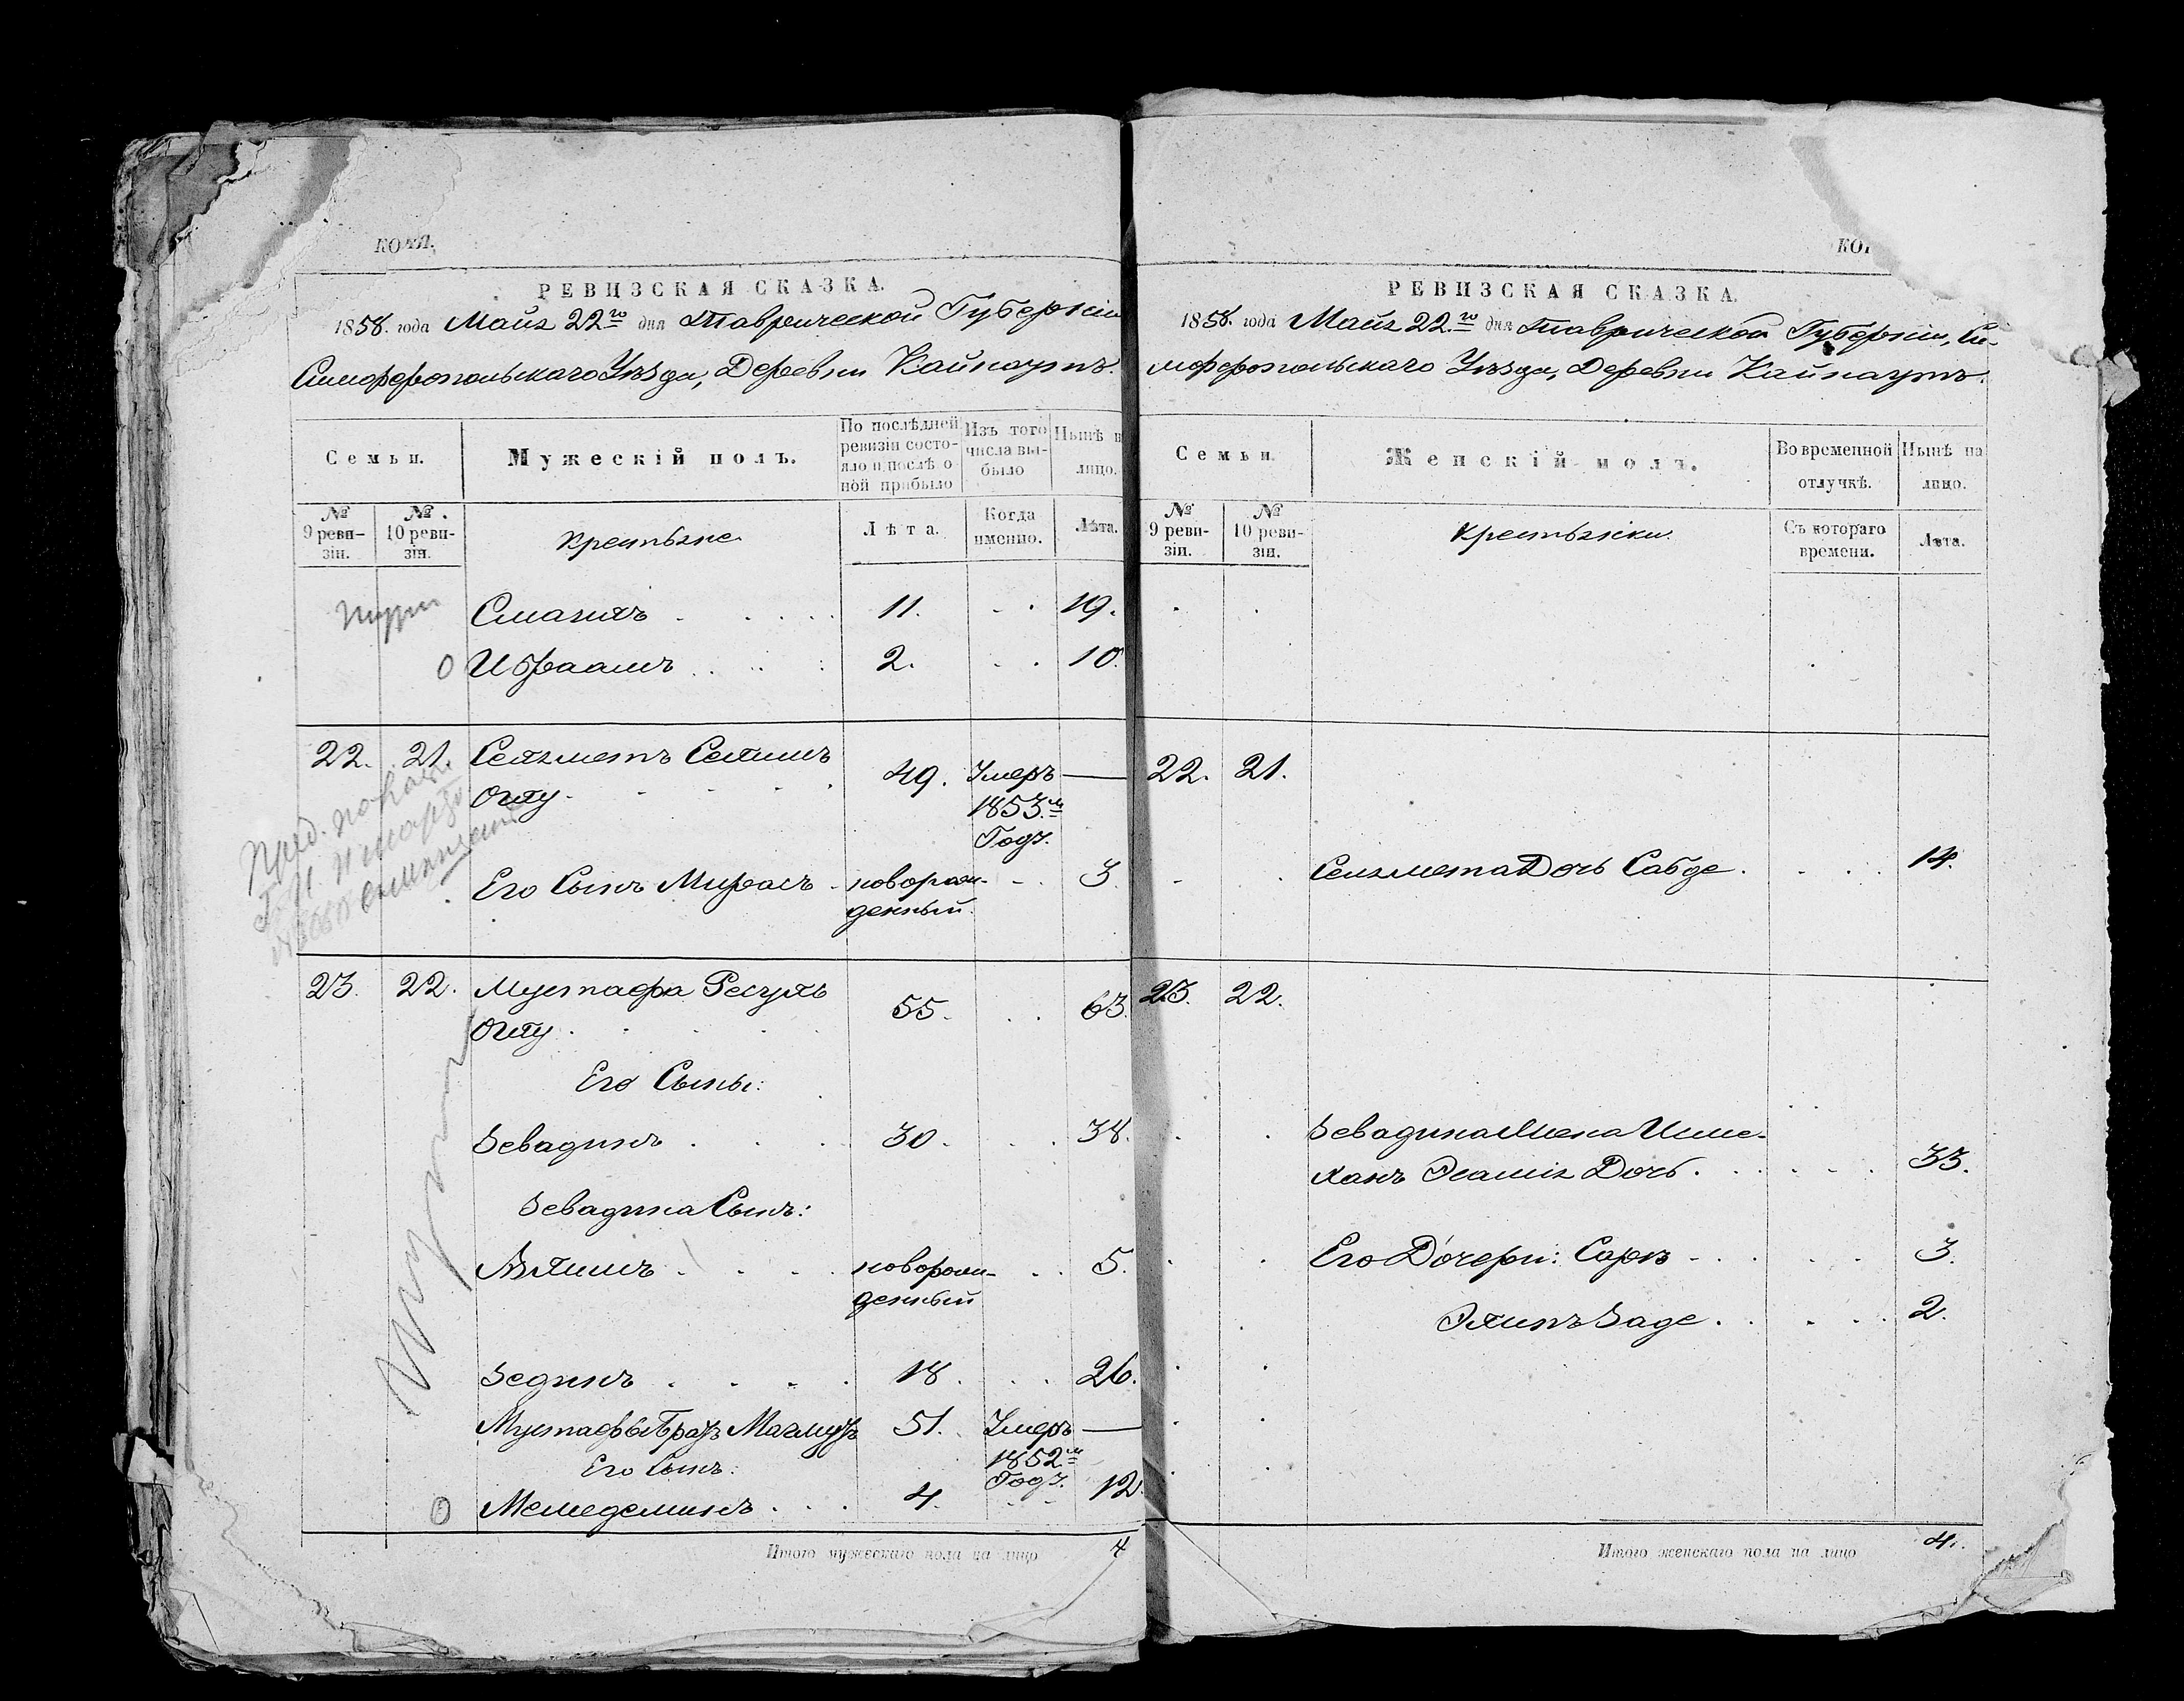 РЕВИЗСКАЯ СКАЗКА.
1858. года Маія 22го дня Таврической Губерніи
Симферопольскаго Уѣзда, Деревни Кайнаутъ.
Семьи.
Мужескій полъ.
По послѣдней ревизіи состояло и послѣ оной прибыло
Изъ того числа выбыло
Нынѣ
лицо.
№ 9 ревизіи.
№ 10 ревизіи.
Крестьяне
Лѣта.
Когда именно.
Лѣта.
Смаилъ 11. 19.
0 Ибраамъ 2. 10.
22. 21. Сеяметъ Селимъ
Оглу 49. Умеръ —
1853м
Годъ.
Его Сынъ Мирасъ новорож- 3.
денный.
23. 22. Мустафа Ресулъ
Оглу 55. 63.
Его Сыны:
Зевадинъ 30. 38.
Зевадина Сынъ:
Алимъ новорож- 5.
денный
Зединъ 18. 26.
Мустафы Братъ Магмутъ 51. Умеръ —
Его Сынъ: 1852м
Годъ.
0 Мемедеминъ 4. 12.
Итого мужескаго пола на лицо
РЕВИЗСКАЯ СКАЗКА.
1858. года Маія 22.го дня Таврической Губерніи, Си-
мферопольскаго Уѣзда, Деревни Кайнаутъ.
Семьи.
Женскій полъ.
Во временной отлучкѣ.
Нынѣ на лицо.
№ 9 ревизіи.
№ 10 ревизіи.
Крестьянки.
Съ котораго времени.
Лѣта.
22. 21.
Сеямета Дочь Сабде 14.
23. 22.
Зевадина Жена Ише-
Дочь 33.
Его Дочери: Саре 3.
Заде 2.
Итого женскаго пола на лицо 4.